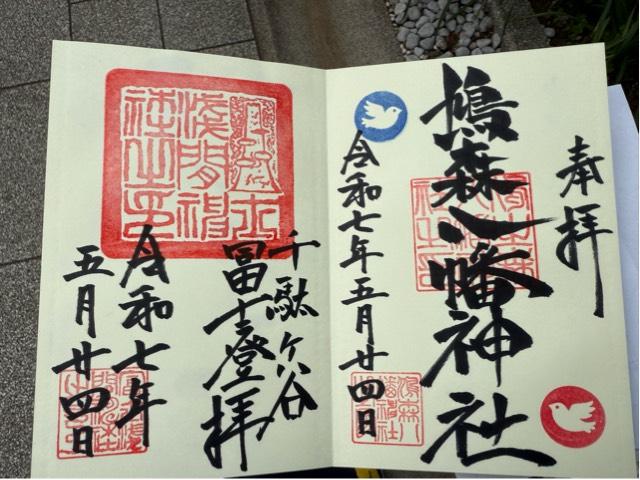 奉拝
鳩森八幡神社
令和七年五月廿四日
千駄ヶ谷
冨士登拝
令和七年
五月廿四日